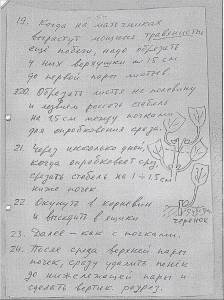 19. Когда на маточниках
вырастут мощные травянисты
ещё побеги, надо обрезать
у них верхушки ≈ 15 см
до первой пары листьев
20. Обрезать листья на половину
и лезвием рассечь стебель
на 25 см между почками
для опробковения среза.
21. Через несколько дней,
когда опробковеет срез,
срезать стебель на 1÷1.5 см
ниже почек
22. Окунуть в корневин
и высадить в ящики
23. Далее – как с
почками.
24. После среза верхней пары
почек, сразу удалить
до нижележащей пары и
сделать вертик. разрез.
черенок